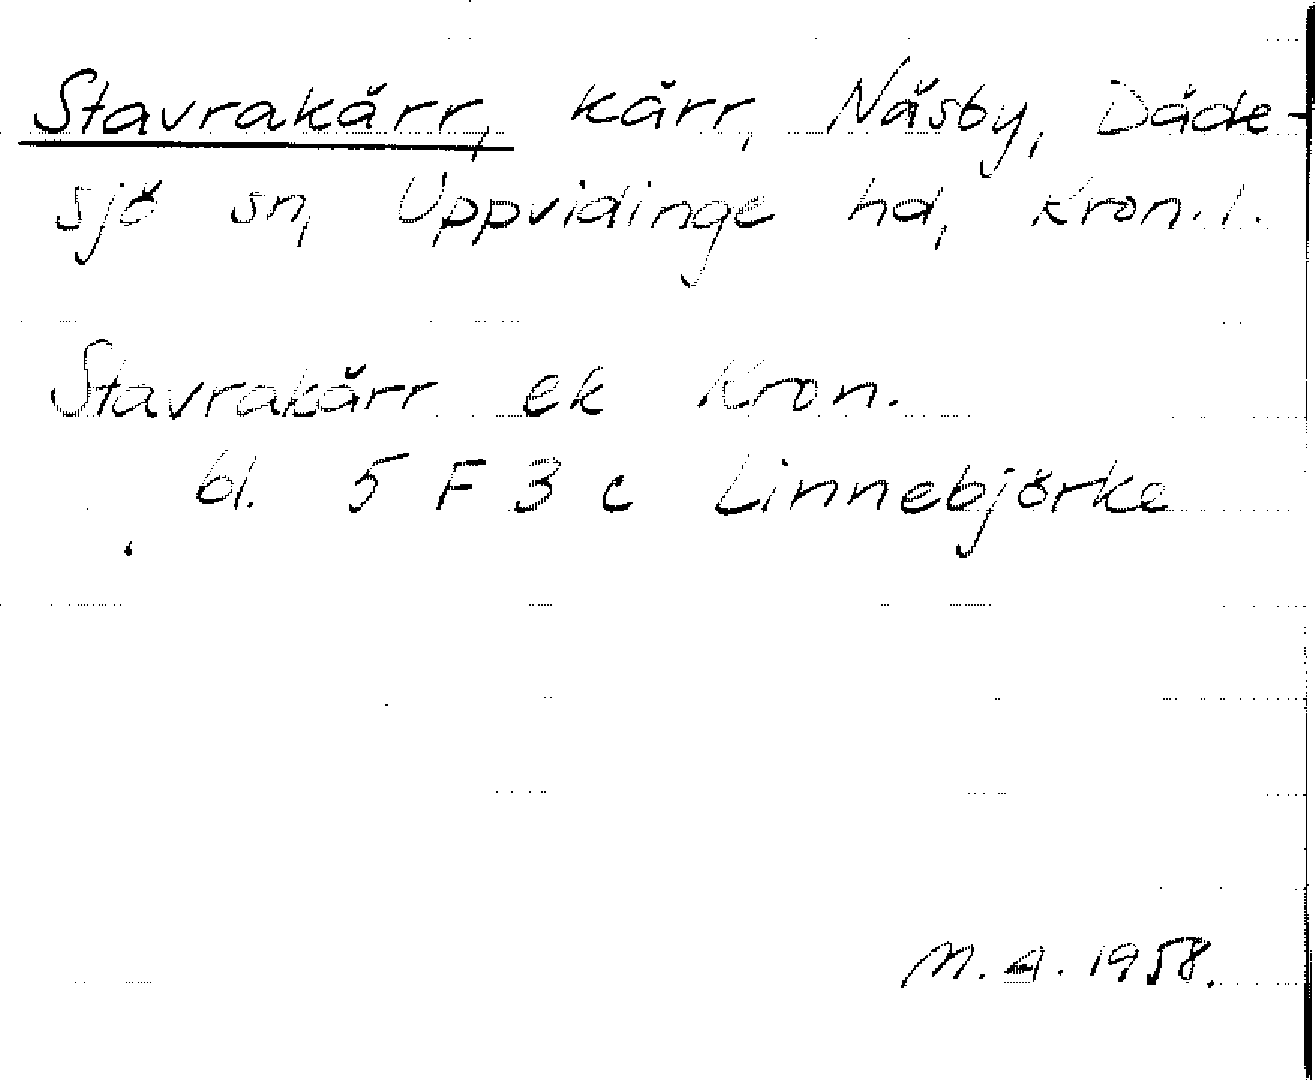 Stavrakärr, kärr, Näsby, Däde-
sjö sn, Uppvidinge hd, Kron. l.
Stavrakärr ek Kron.
bl. 5 F 3 c Linnebjörke
M. A. 1958.